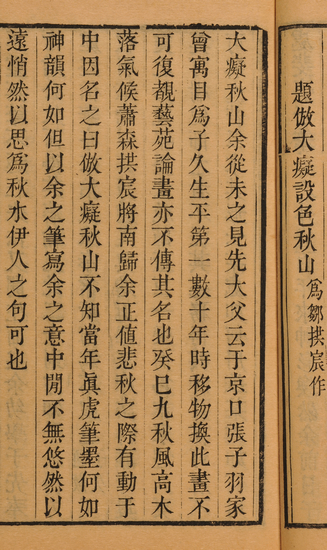 題倣大癡設色秋山 爲鄒拱宸作
大癡秋山余從未之見先大父云于京口張子羽家
曾寓目爲子久生平第一數十年時移物換此畫不
可復覩藝苑論畫亦不傳其名也癸巳九秋風高木
落氣候蕭森拱宸將南歸余正值悲秋之際有動于
中因名之曰倣大癡秋山不知當年眞虎筆墨何如
神韻何如但以余之筆寫余之意中閒不無悠然以
遠悄然以思爲秋水伊人之句可也